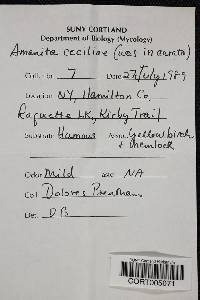 SUNY CORTLAND
Department of Biology (Mycology)
Amanita ceciliae (was inaurata)
Coll. no 7 Date 27 July 1989
Location NY, Hamilton Co,
Raquette LK, Kirby Trail
Substrate Humus Assoc Yellow birch
& hemlock
Odor Mild NA
Coll Dolores
Det. DB
CORT005071